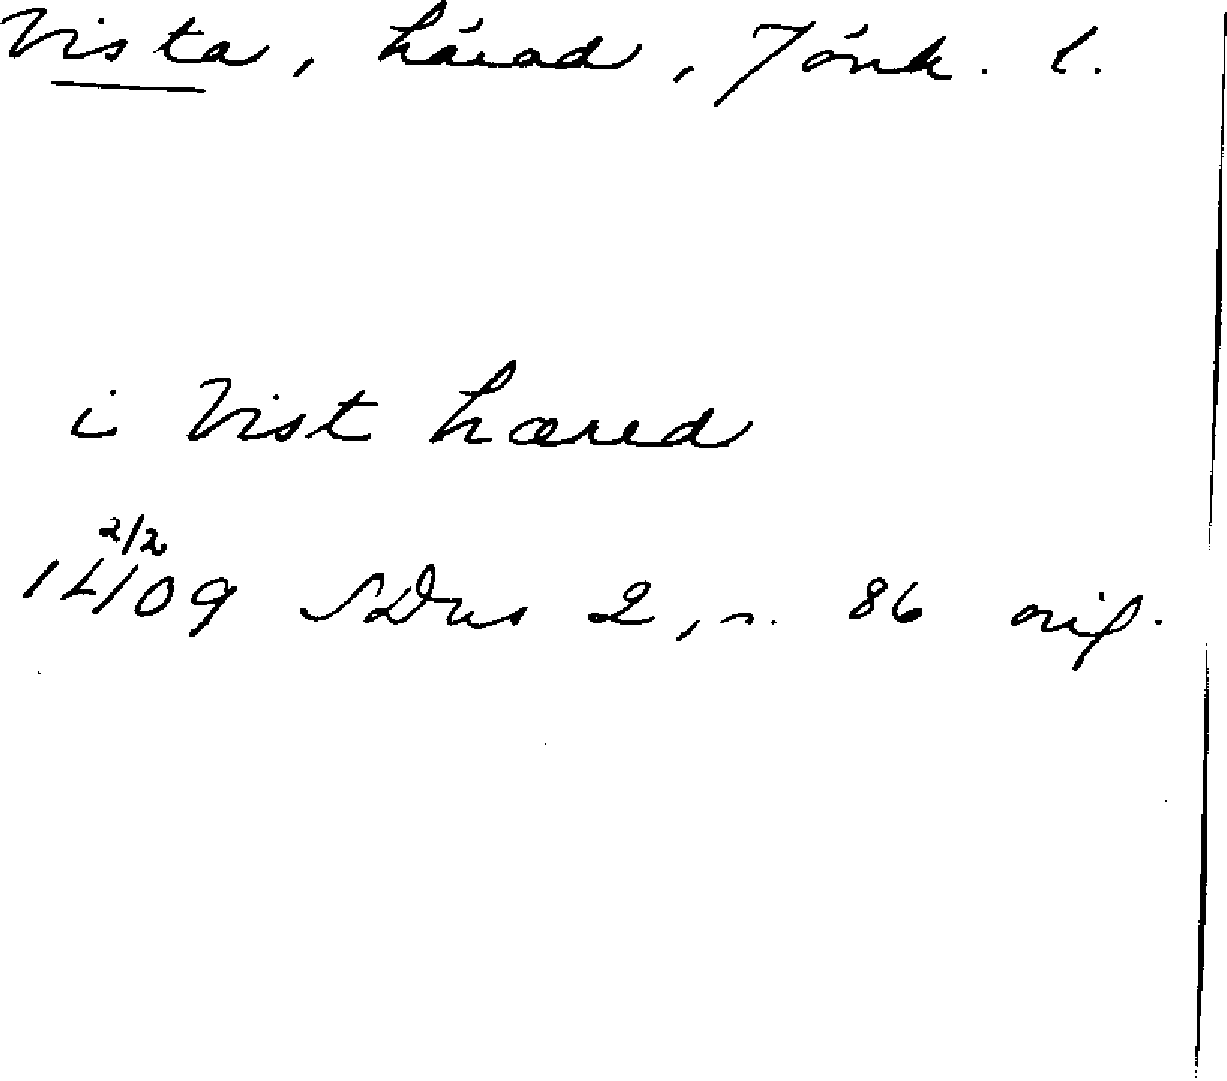 Vista, härad, Jönk. l.
i Vist hæred
2/2
1409 SDns 2, s. 86 orig.